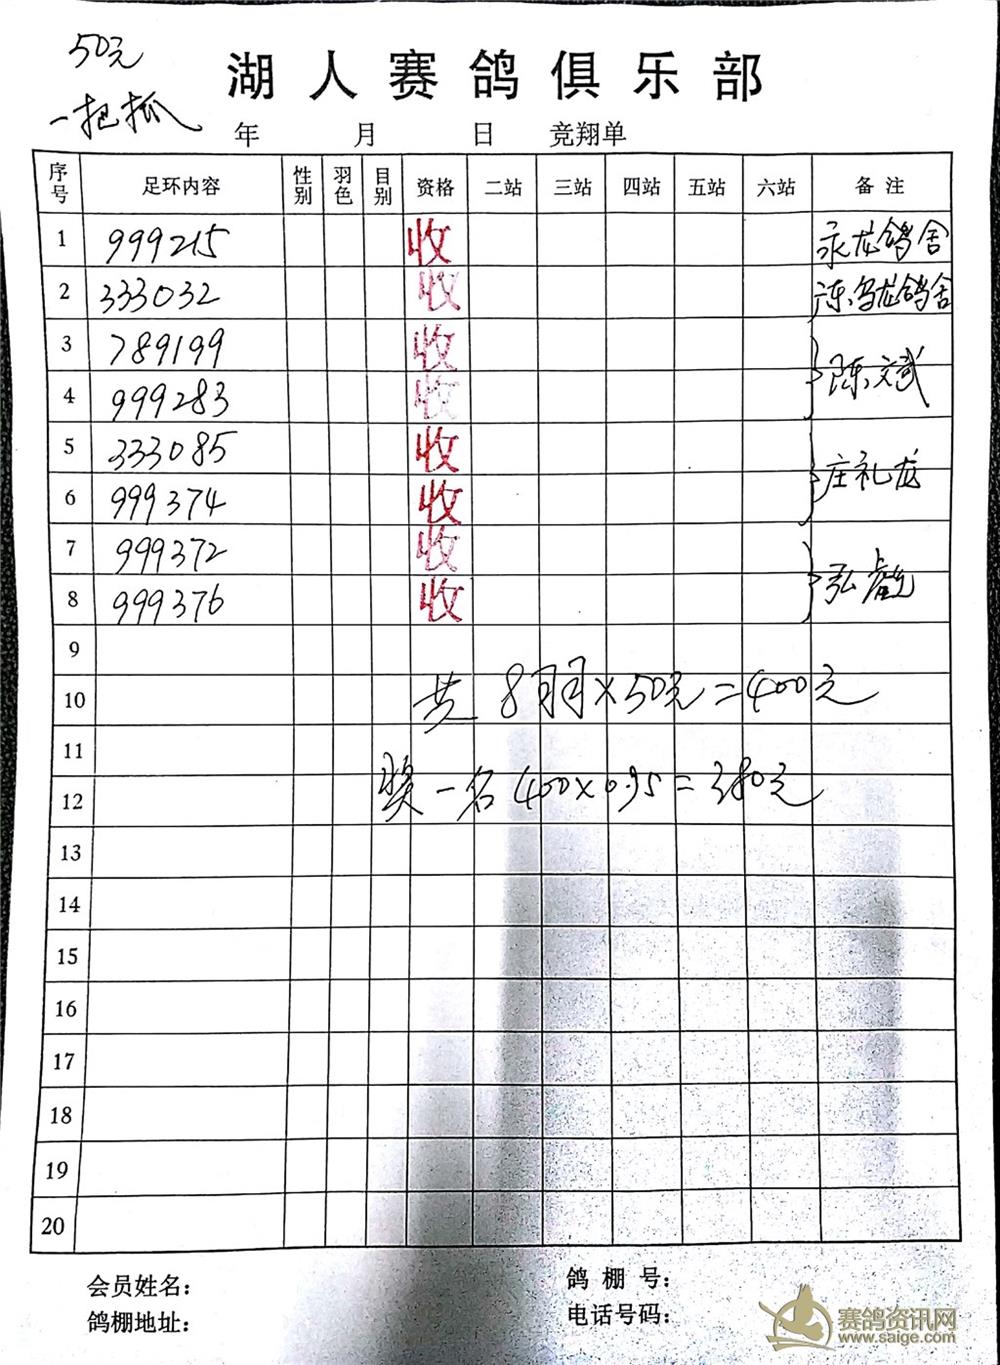 50元
一把抓
湖人赛鸽俱乐部
年 月 日 竞翔单
序号 足环内容 性别 羽色 目别 资格 二站 三站 四站 五站 六站 备注
1 999215 收 永龙鸽舍
2 333032 收 乌龙鸽舍
3 789199 收
陈文斌
4 999283 收
5 333085 收
庄礼龙
6 999374 收
7 999372 收
弘
8 999376 收
9
10 共 8羽×50元=400元
11
12 奖一名 400×0.95=380元
13
14
15
16
17
18
19
20
会员姓名： 鸽棚号：
鸽棚地址： 电话号码：
赛鸽资讯网
www.saige.com